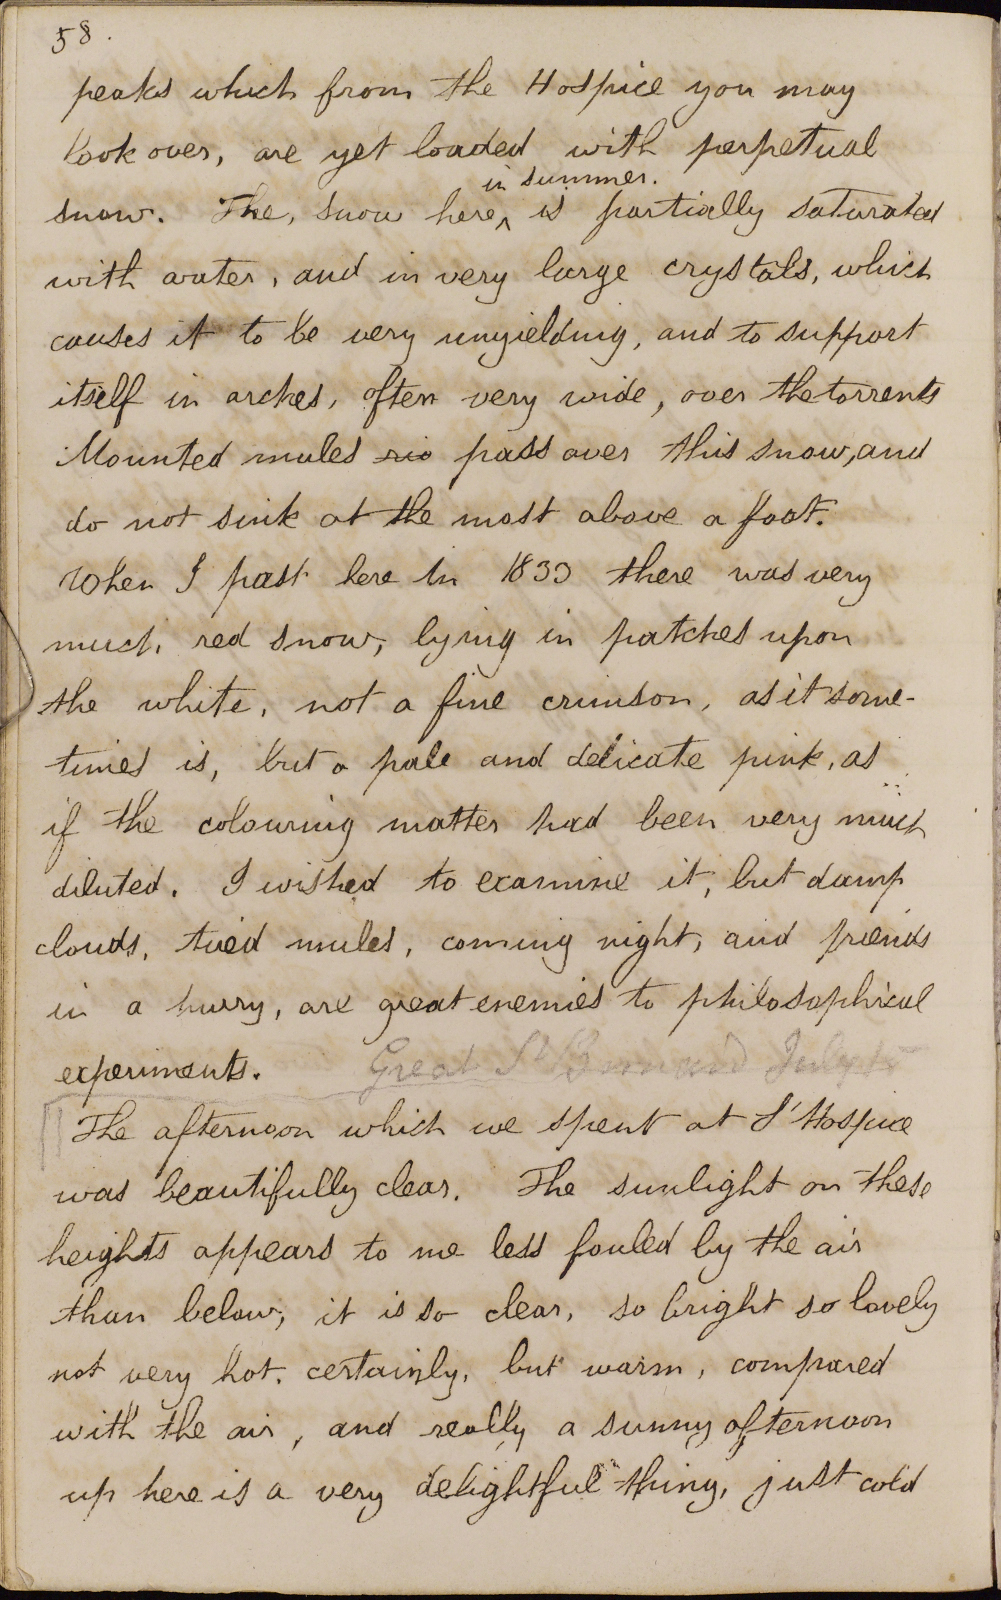 58.
peaks which from the Hospice you may
look over, are yet loaded with perpetual
in summer.
snow. The, snow here, ^ is partially saturated
with water, and in very large crystals, which
causes it to be very unyielding, and to support
itself in arches, often very wide, over the torrents
Mounted mules rio pass over this snow, and
do not sink at the most above a foot.
When I past here in 1833 there was very
much, red snow, lying in patches upon
the white, not a fine crimson, as it some-
times is, but a pale and delicate pink, as
if the colouring matter had been very much
diluted. I wished to examine it, but damp
clouds, tired mules, coming night, and friends
in a hurry, are great enemies to philosophical
experiments. Great St Bernard July
The afternoon which we spent at L'Hospice
was beautifully clear. The sunlight on these
heights appears to me less fouled by the air
than below, it is so clear, so bright so lovely
not very hot, certainly, but warm, compared
with the air, and really a sunny afternoon
up here is a very delightful thing, just cold